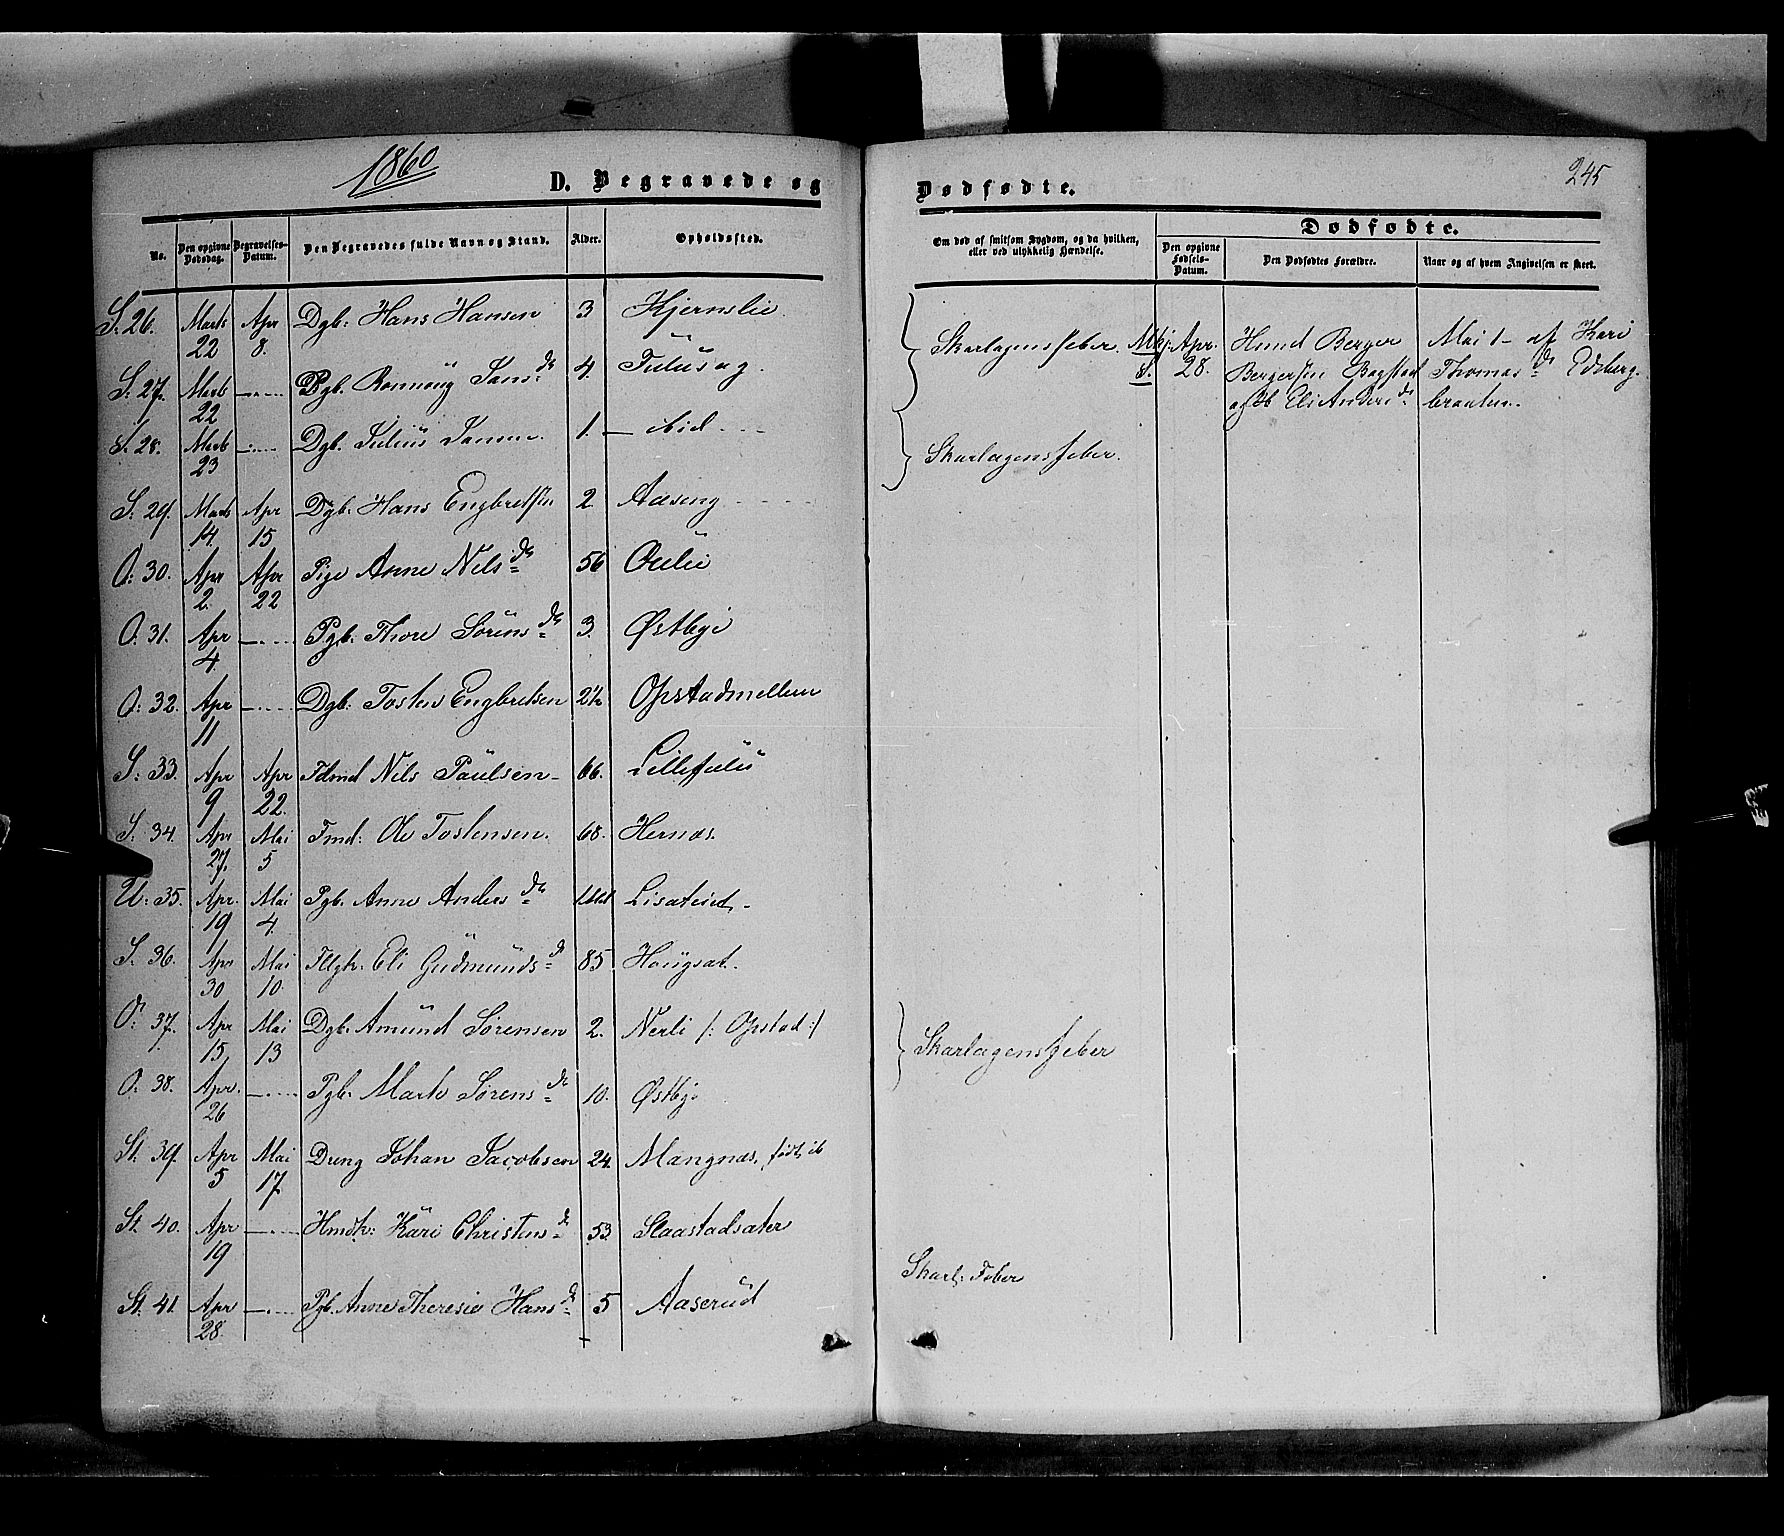 1860
D. Begravede og
Dødfødte.
245
No.
Den opgivne Dødsdag.
Begravelses-Datum.
Den Begravedes fulde Navn og Stand.
Alder.
Opholdssted.
Om død af smitsom Sygdom, og da hvilken, eller ved ulykkelig Hændelse.
Dødfødte.
Den opgivne Fødsels-Datum.
Den Dødfødtes Forældre.
Naar og af hvem Angivelsen er skeet.
S. 26. Marts 22 Apr 8. Dgb: Hans Hansen 3 Kjernslie
S. 27. Marts 22 Pgb. Jans d. 4.
S. 28. Marts 23 Dgb. Julius 1. ibid
S. 29. Marts 14. Apr 15 Dgb. Hans Engbretsen 2 Aaseng
O: 30. Apr 2. Apr 22 Pige Anne Nils dr 56
O. 31. Apr 4. Pgb. Thore Sørens dr 3. Østbye
O: 32. Apr 11 Dgb. Tosten Engbretsen 2½ Opstadmellem
S: 33. Apr 9 Apr 22. Nils Paulsen 66.
S. 34. Apr 27. Mai 5 Fmd: Ole Tostensen. 68. Hernæs.
U: 35. Apr. 19 Mai 4. Pgb. Anne Anders dr
S. 36. Apr 30 Mai 10. Eli Gudmunds d 85 Hougsæt.
O: 37. Apr 15, Mai 13 Dgb. Amund Sørensen 2. Nerli /: Opstad :/
O. 38. Apr. 26 Pgb. Marte Sørens dr 10. Østby
St. 39. Apr 5 Mai 17 Dreng Johan Jacobsen 24. Mangnæs, født ib
St. 40. Apr 19 Hmdk: Kari Christens d 53. Slaastadsæter
St. 41. Apr 28. Pgb. Anne Theresie Hans d 5 Aaserud
Skarlagensfeber.
Skarlagensfeber.
Skarlagensfeber
Skarl: Feber
S. Apr. 28.
Berger Bergersen Bogstad
og Eli Anders d
Mai 1 af Kari
Thomas d Edsberg-
braaten.